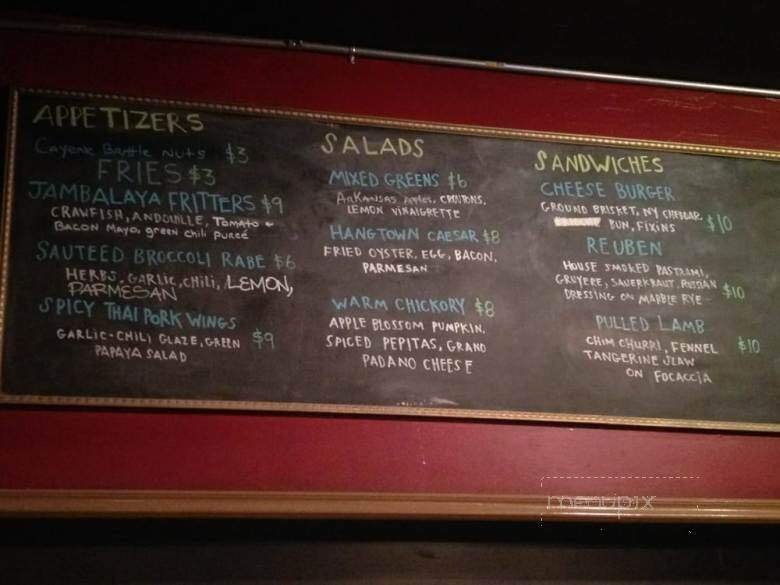 APPETIZERS
Cayenne Brittle Nuts $3
FRIES $3
JAMBALAYA FRITTERS $9
CRAWFISH, ANDOUILLE, Tomato +
BACON Mayo, green chili pureé
SAUTEED BROCCOLI RABE $6
HERBS, GARLIC, CHILI, LEMON,
PARMESAN
SPICY THAI PORK WINGS
GARLIC-CHILI GLAZE, GREEN $9
PAPAYA SALAD
SALADS
MIXED GREENS $6
ARKANSAS Apples, CROUTONS,
LEMON VINAIGRETTE
HANGTOWN CAESAR $8
FRIED OYSTER, EGG, BACON,
PARMESAN
WARM CHICKORY $8
APPLE BLOSSOM PUMPKIN,
SPICED PEPITAS, GRANO
PADANO CHEESE
SANDWICHES
CHEESE BURGER
GROUND BRISKET, NY CHEDDAR
BUN, FIXINS $10
REUBEN
HOUSE SMOKED PASTRAMI,
GRUYERE, SAUERKRAUT, RUSSIAN
DRESSING ON MARBLE RYE $10
PULLED LAMB
CHIM CHURRI, FENNEL $10
TANGERINE SLAW
ON FOCACCIA
menupix